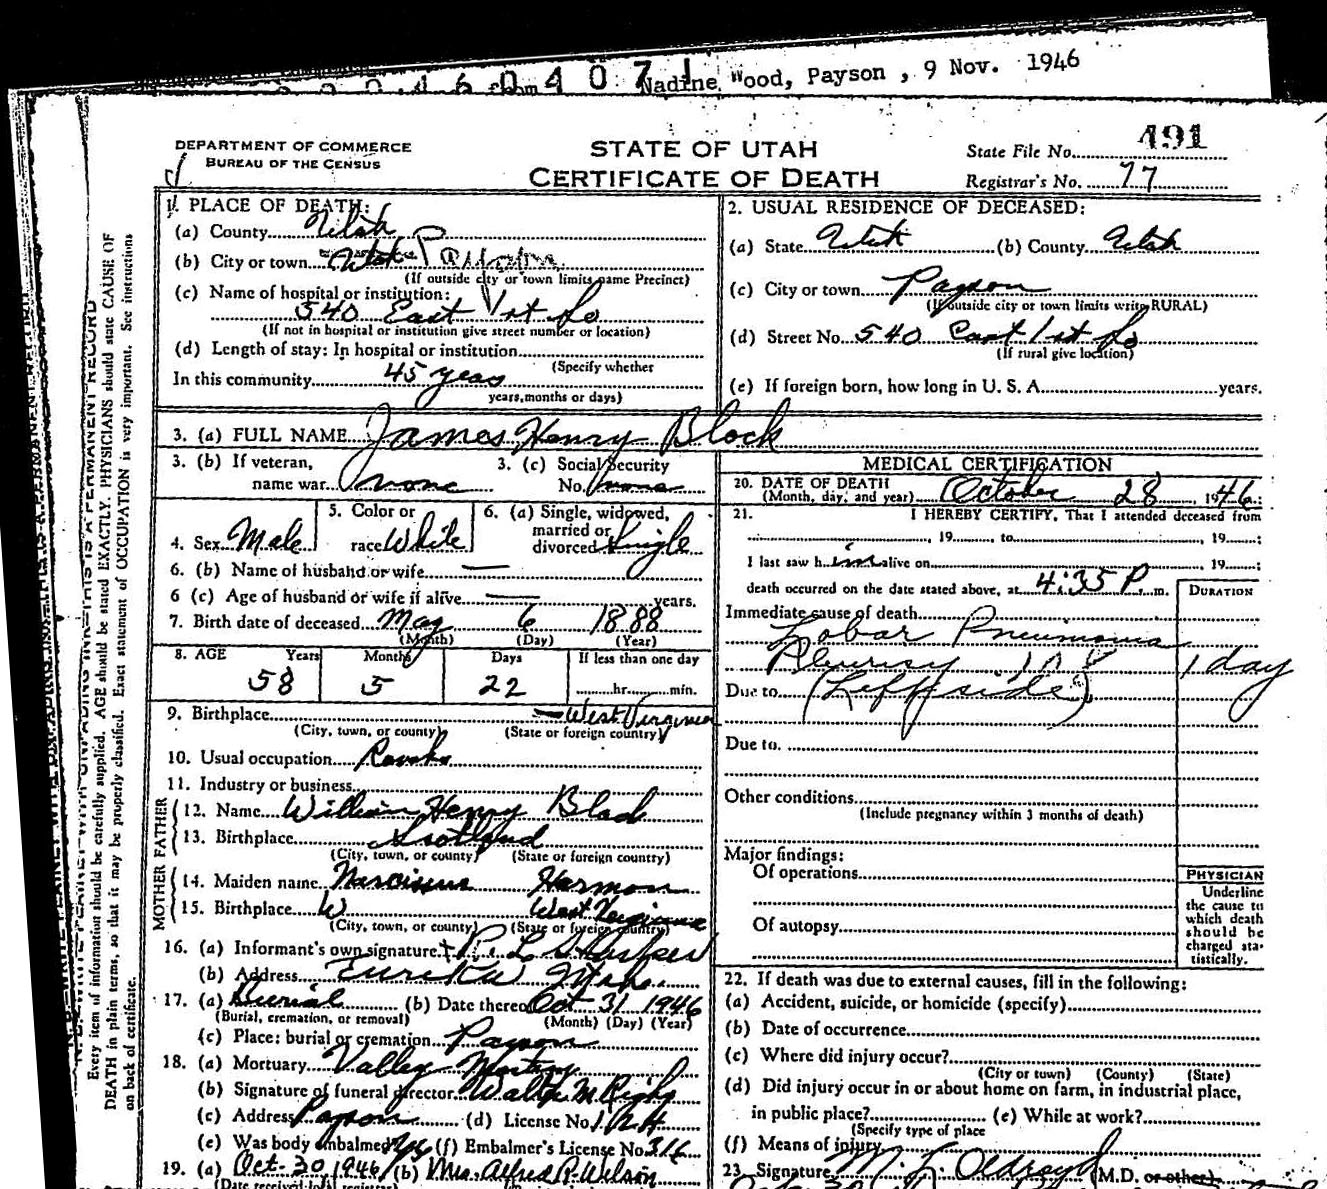 Nadine Wood, Payson , 9 Nov. 1946
DEPARTMENT OF COMMERCE
BUREAU OF THE CENSUS
STATE OF UTAH
CERTIFICATE OF DEATH
State File No. 491
Registrar's No. 77
1. PLACE OF DEATH:
(a) County Utah
(b) City or town Payson
(If outside city or town limits name Precinct)
(c) Name of hospital or institution:
540 East 1st So
(If not in hospital or institution give street number or location)
(d) Length of stay: In hospital or institution
(Specify whether
In this community 45 years
years, months or days)
2. USUAL RESIDENCE OF DECEASED:
(a) State Utah (b) County Utah
(c) City or town Payson
(If outside city or town limits write RURAL)
(d) Street No. 540 East 1st So
(If rural give location)
(e) If foreign born, how long in U. S. A. years.
3. (a) FULL NAME James Henry Black
3. (b) If veteran, name war none
3. (c) Social Security No. none
4. Sex Male
5. Color or race White
6. (a) Single, widowed, married or divorced Single
6. (b) Name of husband or wife —
6 (c) Age of husband or wife if alive — years.
7. Birth date of deceased May 6 1888
(Month) (Day) (Year)
8. AGE Years Months Days If less than one day
58 5 22 hr. min.
9. Birthplace — West Virginia
(City, town, or county) (State or foreign country)
10. Usual occupation
11. Industry or business
FATHER
12. Name William Henry Black
13. Birthplace Scotland
(City, town, or county) (State or foreign country)
MOTHER
14. Maiden name Narcissus Harmon
15. Birthplace W West Virginia
(City, town, or county) (State or foreign country)
16. (a) Informant's own signature R. L.
(b) Address Eureka Utah.
17. (a) Burial (b) Date thereof Oct 31 1946
(Burial, cremation, or removal) (Month) (Day) (Year)
(c) Place: burial or cremation Payson
18. (a) Mortuary Valley Mortuary
(b) Signature of funeral director
(c) Address Payson (d) License No.
(e) Was body embalmed Yes (f) Embalmer's License No. 316
19. (a) Oct. 30 1946 (b) Mrs. Alfred R. Wilson
MEDICAL CERTIFICATION
20. DATE OF DEATH
(Month, day, and year) October 28, 1946.
21. I HEREBY CERTIFY, That I attended deceased from
, 19 , to , 19 ;
I last saw him alive on , 19 ;
death occurred on the date stated above, at 4:35 P. m.
DURATION
Immediate cause of death
Lobar Pneumonia
Pleurisy 108 1 day
Due to (Left side)
Due to
Other conditions
(Include pregnancy within 3 months of death)
Major findings:
Of operations
Of autopsy
PHYSICIAN
Underline
the cause to
which death
should be
charged sta-
tistically.
22. If death was due to external causes, fill in the following:
(a) Accident, suicide, or homicide (specify)
(b) Date of occurrence
(c) Where did injury occur?
(City or town) (County) (State)
(d) Did injury occur in or about home on farm, in industrial place,
in public place? (e) While at work?
(Specify type of place
(f) Means of injury
23. Signature M. L. Oldroyd (M.D. or other)
Every item of information should be carefully supplied. AGE should be stated EXACTLY. PHYSICIANS should state CAUSE OF
DEATH in plain terms, so that it may be properly classified. Exact statement of OCCUPATION is very important. See instructions
on back of certificate.